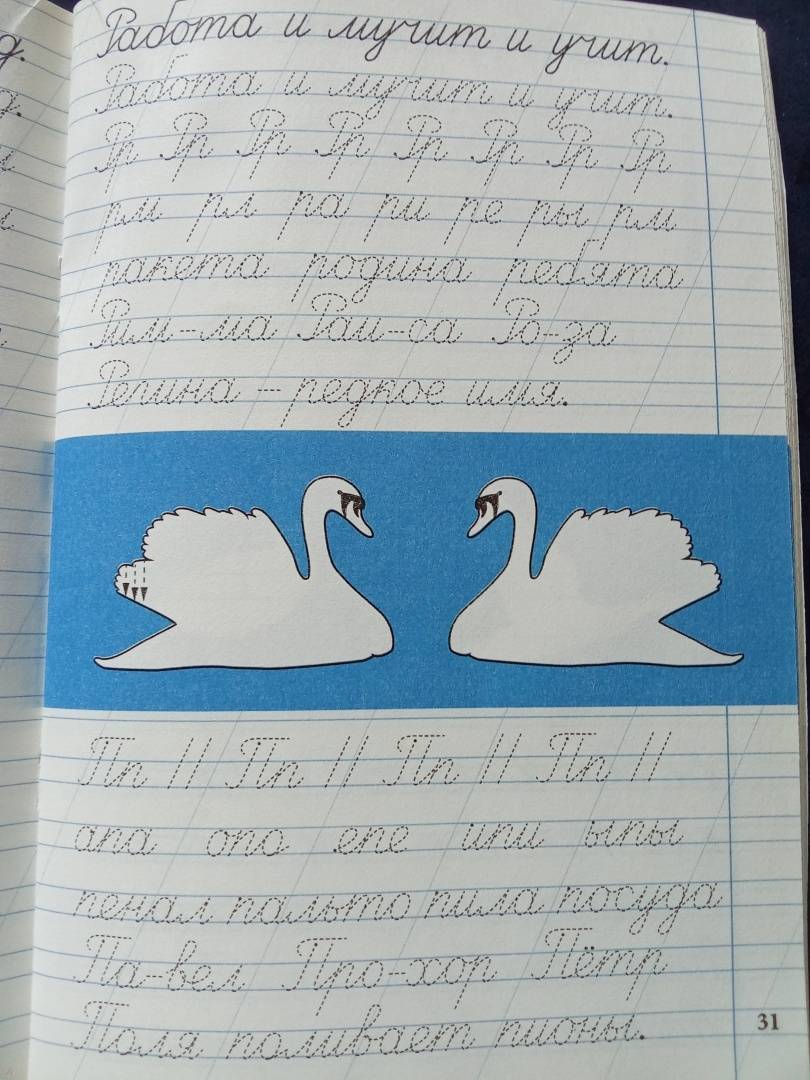 Работа и мучит и учит.
Работа и мучит и учит.
Рр Рр Рр Рр Рр Рр Рр Рр
ри рл ра ри ре ры рм
ракета родина ребята
Рим-ма Раи-са Ро-за
Регина - редкое имя.
Пп // Пп // Пп // Пп //
апа опо епе ипи ыпы
пенал пальто пила посуда
Па-вел Про-хор Пётр
Поля поливает пионы.
31